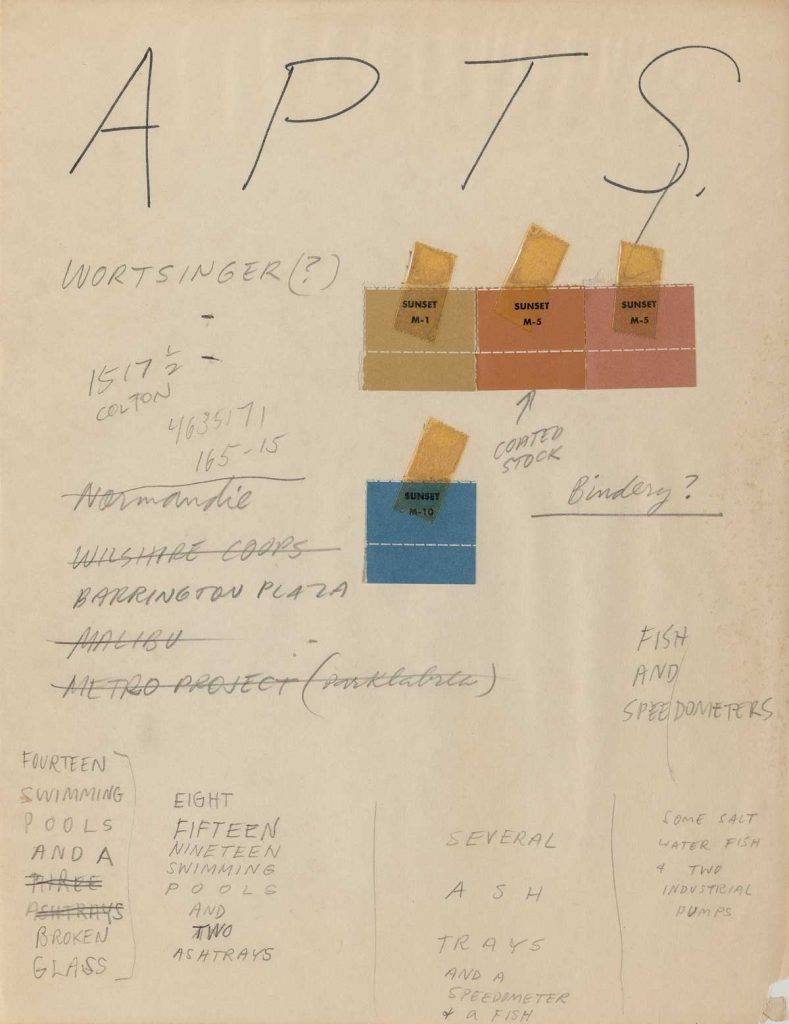 APTS.
WORTSINGER(?)
-
-
1517 1/2
COLTON
4635171
165-15
Normandie
WILSHIRE COOPS
BARRINGTON PLAZA
MALIBU -
METRO PROJECT (parklabrea)
SUNSET
M-1
SUNSET
M-5
SUNSET
M-5
COATED
STOCK
SUNSET
M-10
Bindery?
FISH
AND
SPEEDOMETERS
FOURTEEN
SWIMMING
POOLS
AND A
THREE
ASHTRAYS
BROKEN
GLASS
EIGHT
FIFTEEN
NINETEEN
SWIMMING
POOLS
AND
TWO
ASHTRAYS
SEVERAL
ASH
TRAYS
AND A
SPEEDOMETER
& a FISH
SOME SALT
WATER FISH
& TWO
INDUSTRIAL
PUMPS